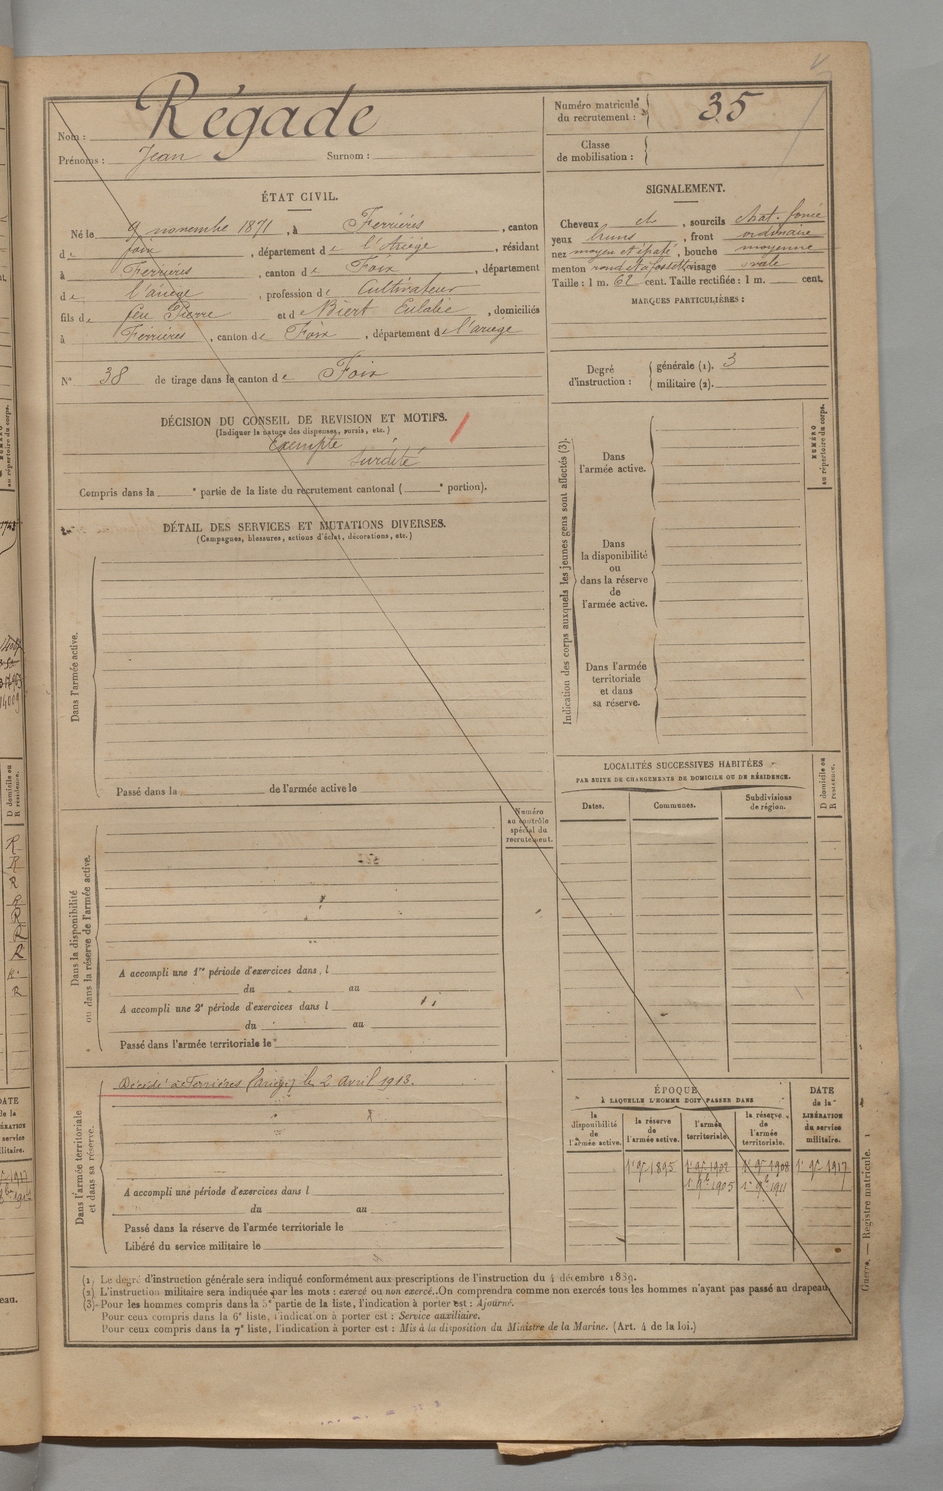 Nom : Régade
Prénoms : Jean Surnom :
Numéro matricule du recrutement : 35
Classe de mobilisation :
ÉTAT CIVIL.
Né le 9 novembre 1871, à Ferrières, canton
de foix, département de l'Ariège, résidant
à Ferrières, canton de Foix, département
de l'ariège, profession de Cultivateur
fils de feu Pierre et de Biert Eulalie, domiciliés
à Ferrières, canton de Foix, département de l'ariege
N° 38 de tirage dans le canton de Foix
SIGNALEMENT.
Cheveux et, sourcils chat. foncé
yeux bruns, front ordinaire
nez moyen et épaté, bouche moyenne
menton rond et à fossette visage ovale
Taille : 1 m. 62 cent. Taille rectifiée : 1 m. cent.
MARQUES PARTICULIÈRES :
Degré d'instruction : générale (1). 3
militaire (2).
DÉCISION DU CONSEIL DE REVISION ET MOTIFS.
(Indiquer la nature des dispenses, sursis, etc.)
Exempté
Surdité
Compris dans la e partie de la liste du recrutement cantonal ( e portion).
DÉTAIL DES SERVICES ET MUTATIONS DIVERSES.
(Campagnes, blessures, actions d'éclat, décorations, etc.)
Dans l'armée active.
Passé dans la de l'armée active le
Numéro au contrôle spécial du recrutement.
Dans la disponibilité ou dans la réserve de l'armée active.
A accompli une 1re période d'exercices dans l
du au
A accompli une 2e période d'exercices dans l
du au
Passé dans l'armée territoriale le
Dans l'armée territoriale et dans sa réserve.
Décédé à Ferrières (ariège) le 2 avril 1913.
A accompli une période d'exercices dans l
du au
Passé dans la réserve de l'armée territoriale le
Libéré du service militaire le
Indication des corps auxquels les jeunes gens sont affectés (3).
Dans l'armée active.
Dans la disponibilité ou dans la réserve de l'armée active.
Dans l'armée territoriale et dans sa réserve.
NUMÉRO au répertoire du corps.
LOCALITÉS SUCCESSIVES HABITÉES
PAR SUITE DE CHANGEMENTS DE DOMICILE OU DE RÉSIDENCE.
Dates. Communes. Subdivisions de région. D domicile ou R résidence.
ÉPOQUE
À LAQUELLE L'HOMME DOIT PASSER DANS
DATE de la LIBÉRATION du service militaire.
la disponibilité de l'armée active. la réserve de l'armée active. l'armée territoriale. la réserve de l'armée territoriale.
1895 1902 1908 1917
1905 1911
(1) Le degré d'instruction générale sera indiqué conformément aux prescriptions de l'instruction du 4 décembre 1889.
(2) L'instruction militaire sera indiquée par les mots : exercé ou non exercé. On comprendra comme non exercés tous les hommes n'ayant pas passé au drapeau.
(3) Pour les hommes compris dans la 5e partie de la liste, l'indication à porter est : Ajourné.
Pour ceux compris dans la 6e liste, l'indication à porter est : Service auxiliaire.
Pour ceux compris dans la 7e liste, l'indication à porter est : Mis à la disposition du Ministre de la Marine. (Art. 4 de la loi.)
Guerre. — Registre matricule. 1